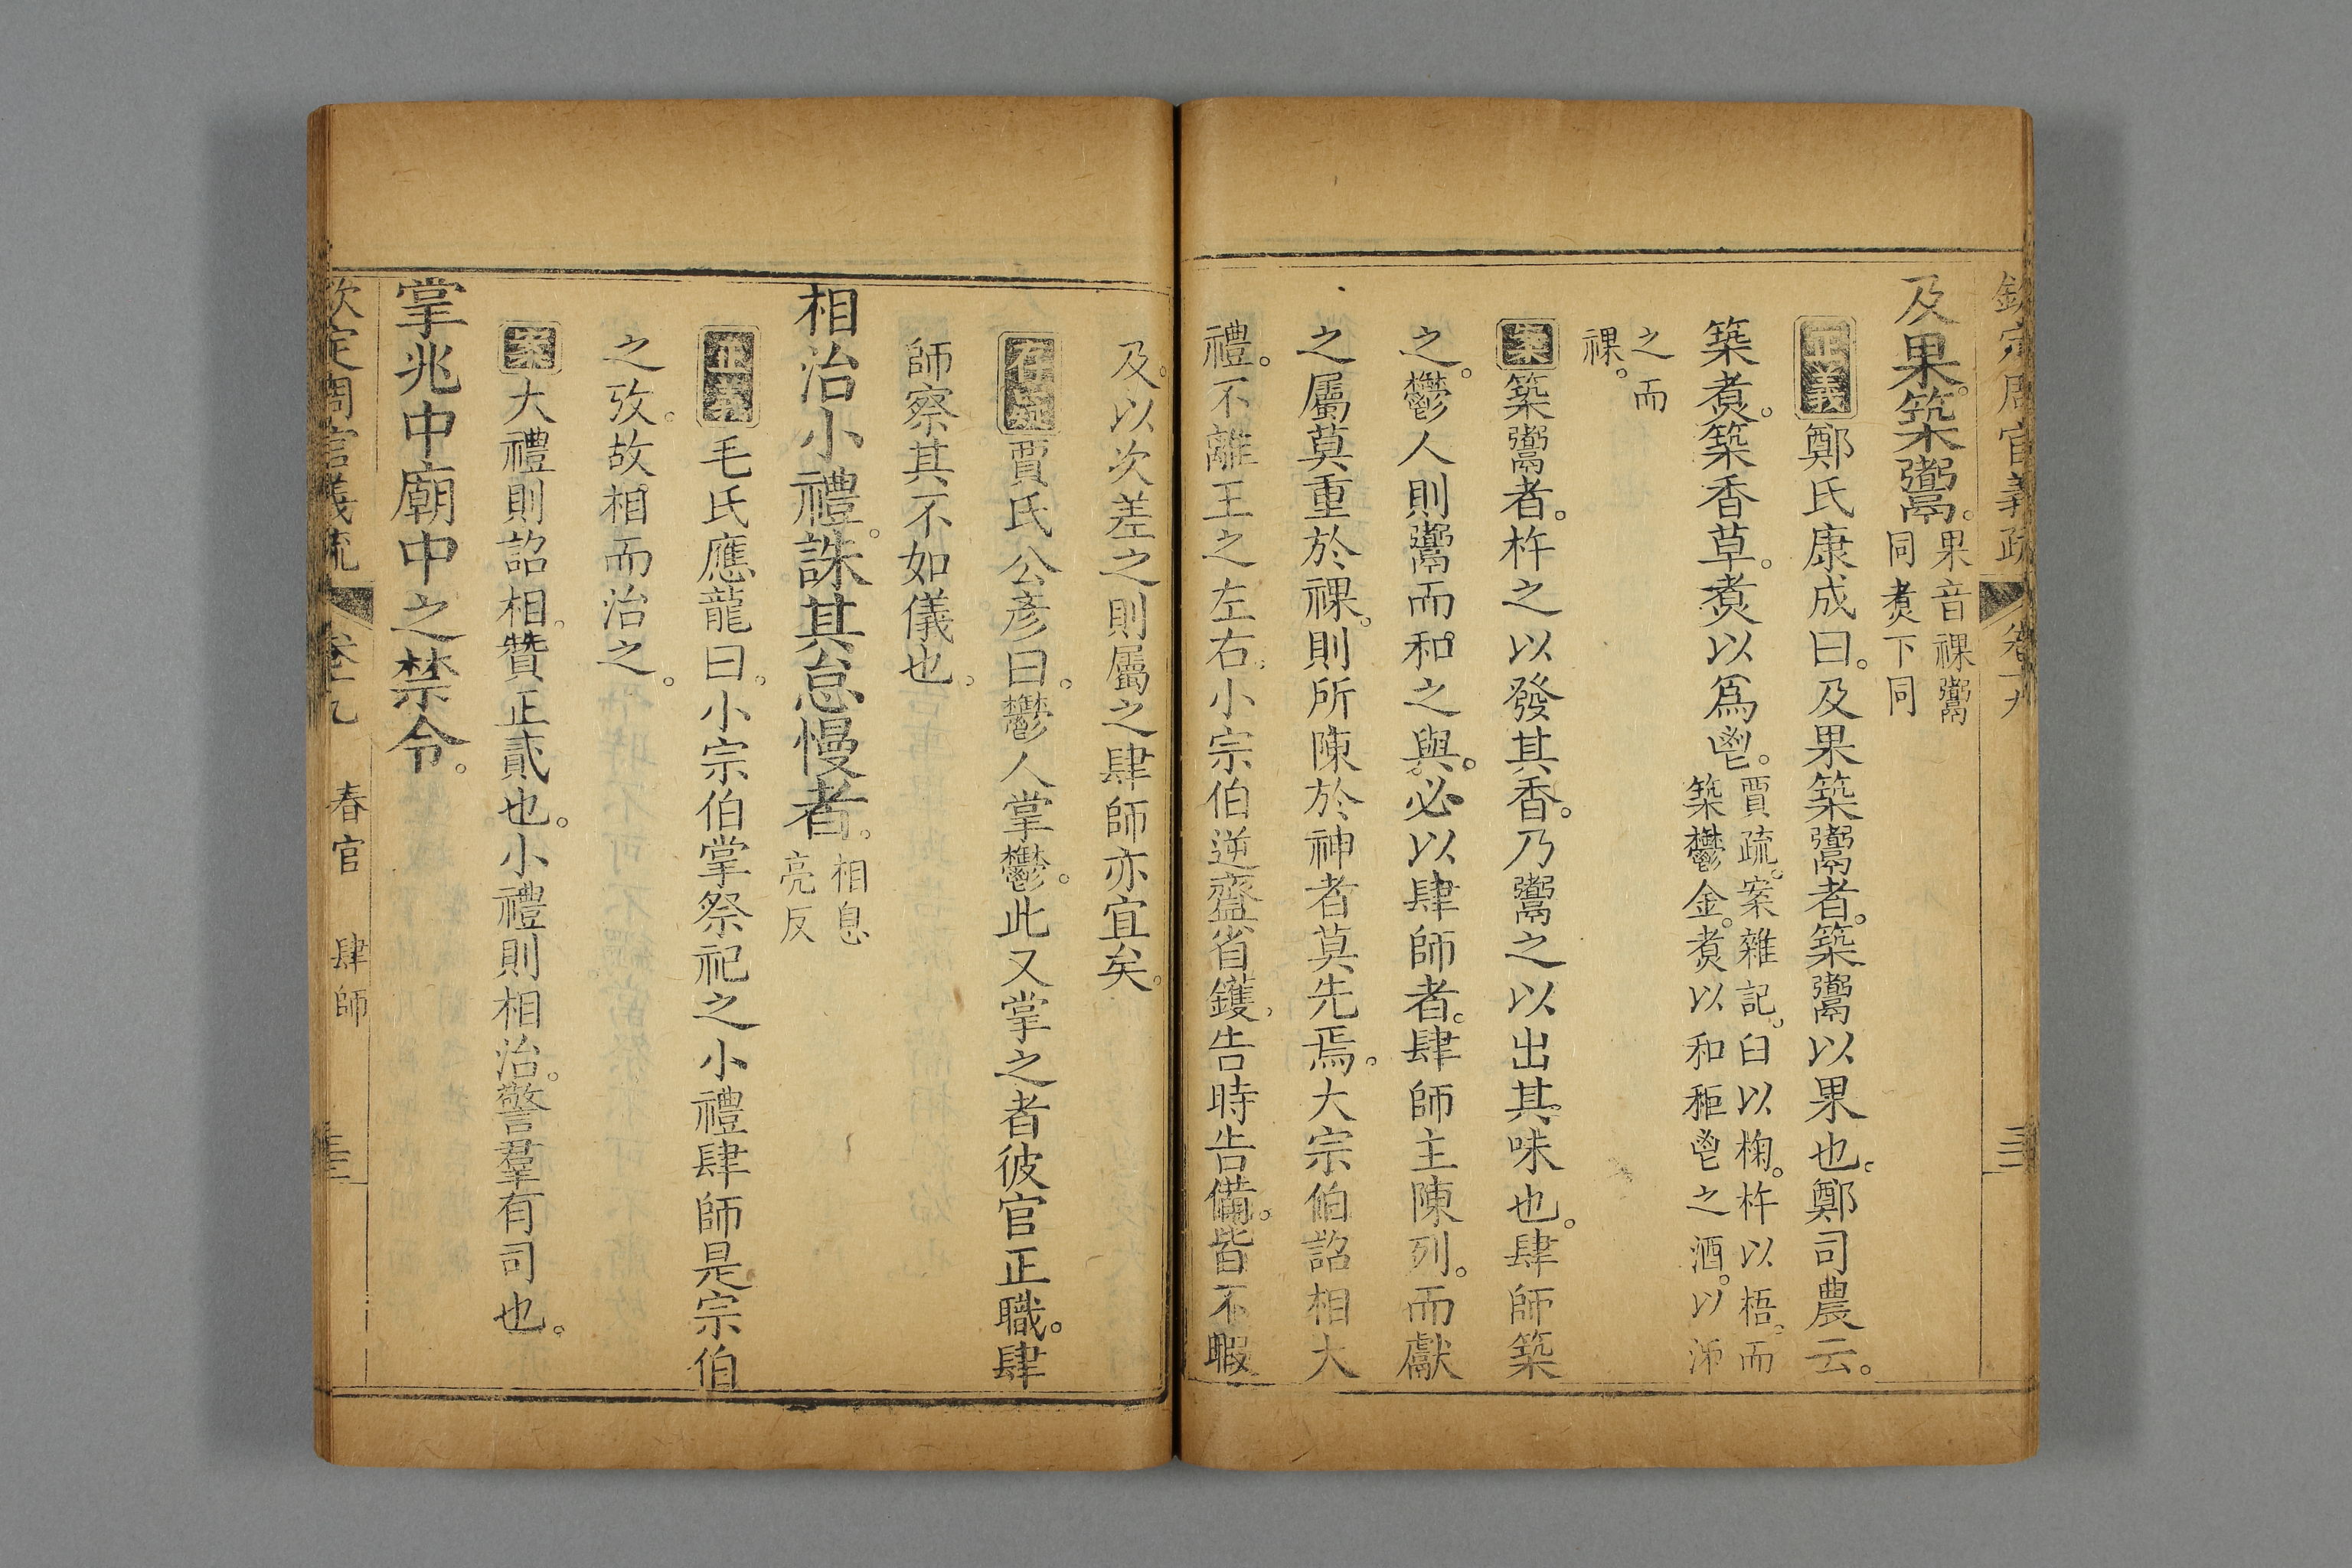 欽定周官義疏 卷十九
及果築鬻。果音祼鬻
同煑下同
正義 鄭氏康成曰。及果築鬻者。築鬻以果也。鄭司農云。
築煑。築香草。煑以爲鬯。賈疏。案雜記。臼以椈。杵以梧。而
築鬱金。煑以和秬鬯之酒。以泲
之而
祼。
案 築鬻者。杵之以發其香。乃鬻之以出其味也。肆師築
之。鬱人則鬻而和之與。必以肆師者。肆師主陳列。而獻
之屬莫重於祼。則所陳於神者莫先焉。大宗伯詔相大
禮。不離王之左右。小宗伯逆齍省鑊。告時告備。皆不暇
及。以次差之則屬之肆師亦宜矣。
存疑 賈氏公彥曰。鬱人掌鬱。此又掌之者彼官正職。肆
師察其不如儀也。
相治小禮。誅其怠慢者。相息
亮反
正義 毛氏應龍曰。小宗伯掌祭祀之小禮肆師是宗伯
之攷。故相而治之。
案 大禮則詔相。贊正貳也。小禮則相治。警羣有司也。
掌兆中廟中之禁令。
欽定周官義疏 卷十九 春官 肆師